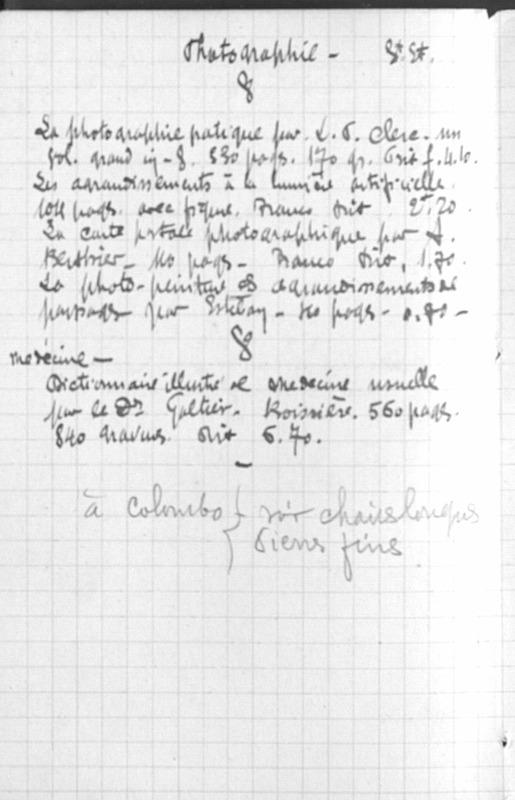 Photographie -
La photographie pratique par L. P. Clerc. un
vol. grand in-8. 330 pags. 170 gr. Prix f. 4.10.
Les agrandissements à la lumière artificielle.
104 pags. avec figure. Franco Prix 2f.20.
La carte postale photographique par J.
Berthier - 110 pags - Franco Prix. 1.70.
La photo-peinture et agrandissements de
paysages par - pags - 0.80 -
medécine -
Dictionnaire illustré de medecine usuelle
par le Dr Galtier-Boissière. 560 pags.
840 gravures. Prix 6.70.
à colombo } voir chaiselongues
Pierres fines